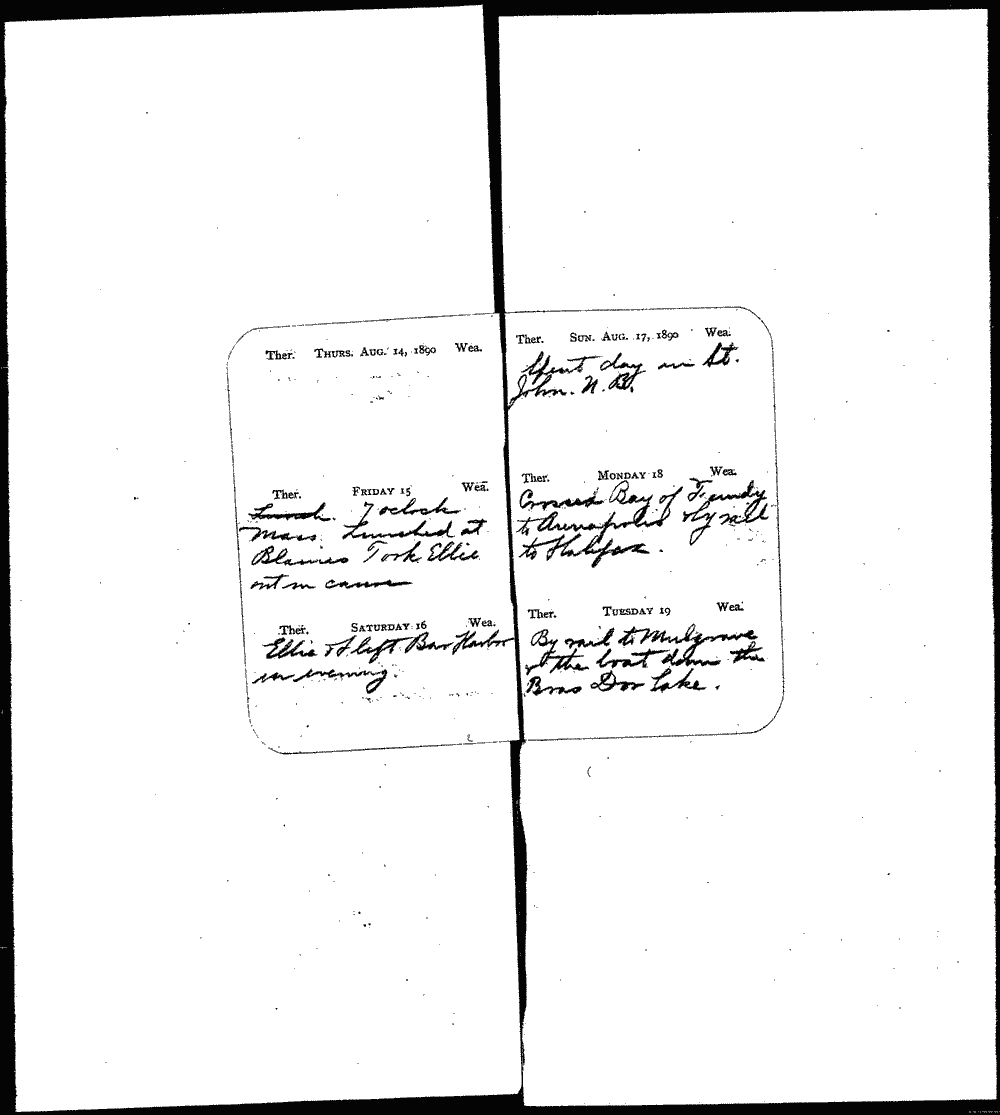 Ther. THURS. AUG. 14, 1890 Wea.
Ther. FRIDAY 15 Wea.
Lunch. 7 oclock
Mass. Lunched at
Blaines Took Ellie
out in canoe
Ther. SATURDAY 16 Wea.
Ellie & I left Bar Harbor
in evening.
Ther. SUN. AUG. 17, 1890 Wea.
Spent day in St.
John. N. B.
Ther. MONDAY 18 Wea.
Crossed Bay of Fundy
to Annapolis & by rail
to Halifax.
Ther. TUESDAY 19 Wea.
By rail to Mulgrave
& the boat down the
Bras Dor Lake.